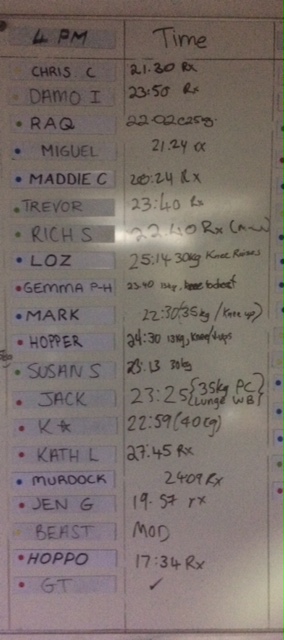 4 PM Time
CHRIS C 21.30 Rx
DAMO I 23:50 Rx
RAQ 22.02 @25kg.
MIGUEL 21.24 rx
MADDIE C 20:24 Rx
TREVOR 23:40 Rx
RICH S 22.40 Rx
LOZ 25:14 30kg Knee Raises
GEMMA P-H 23.40 knee
MARK 22:30 (35kg / Knee up)
HOPPER 24:30
SUSAN S 23.13 30kg
JACK 23:25 {35kg PC
Lunge WB}
K☆ 22:59 (40kg)
KATH L 27:45 Rx
MURDOCK 24:09 Rx
JEN G 19.57 rx
BEAST MOD
HOPPO 17:34 Rx
GT ✓